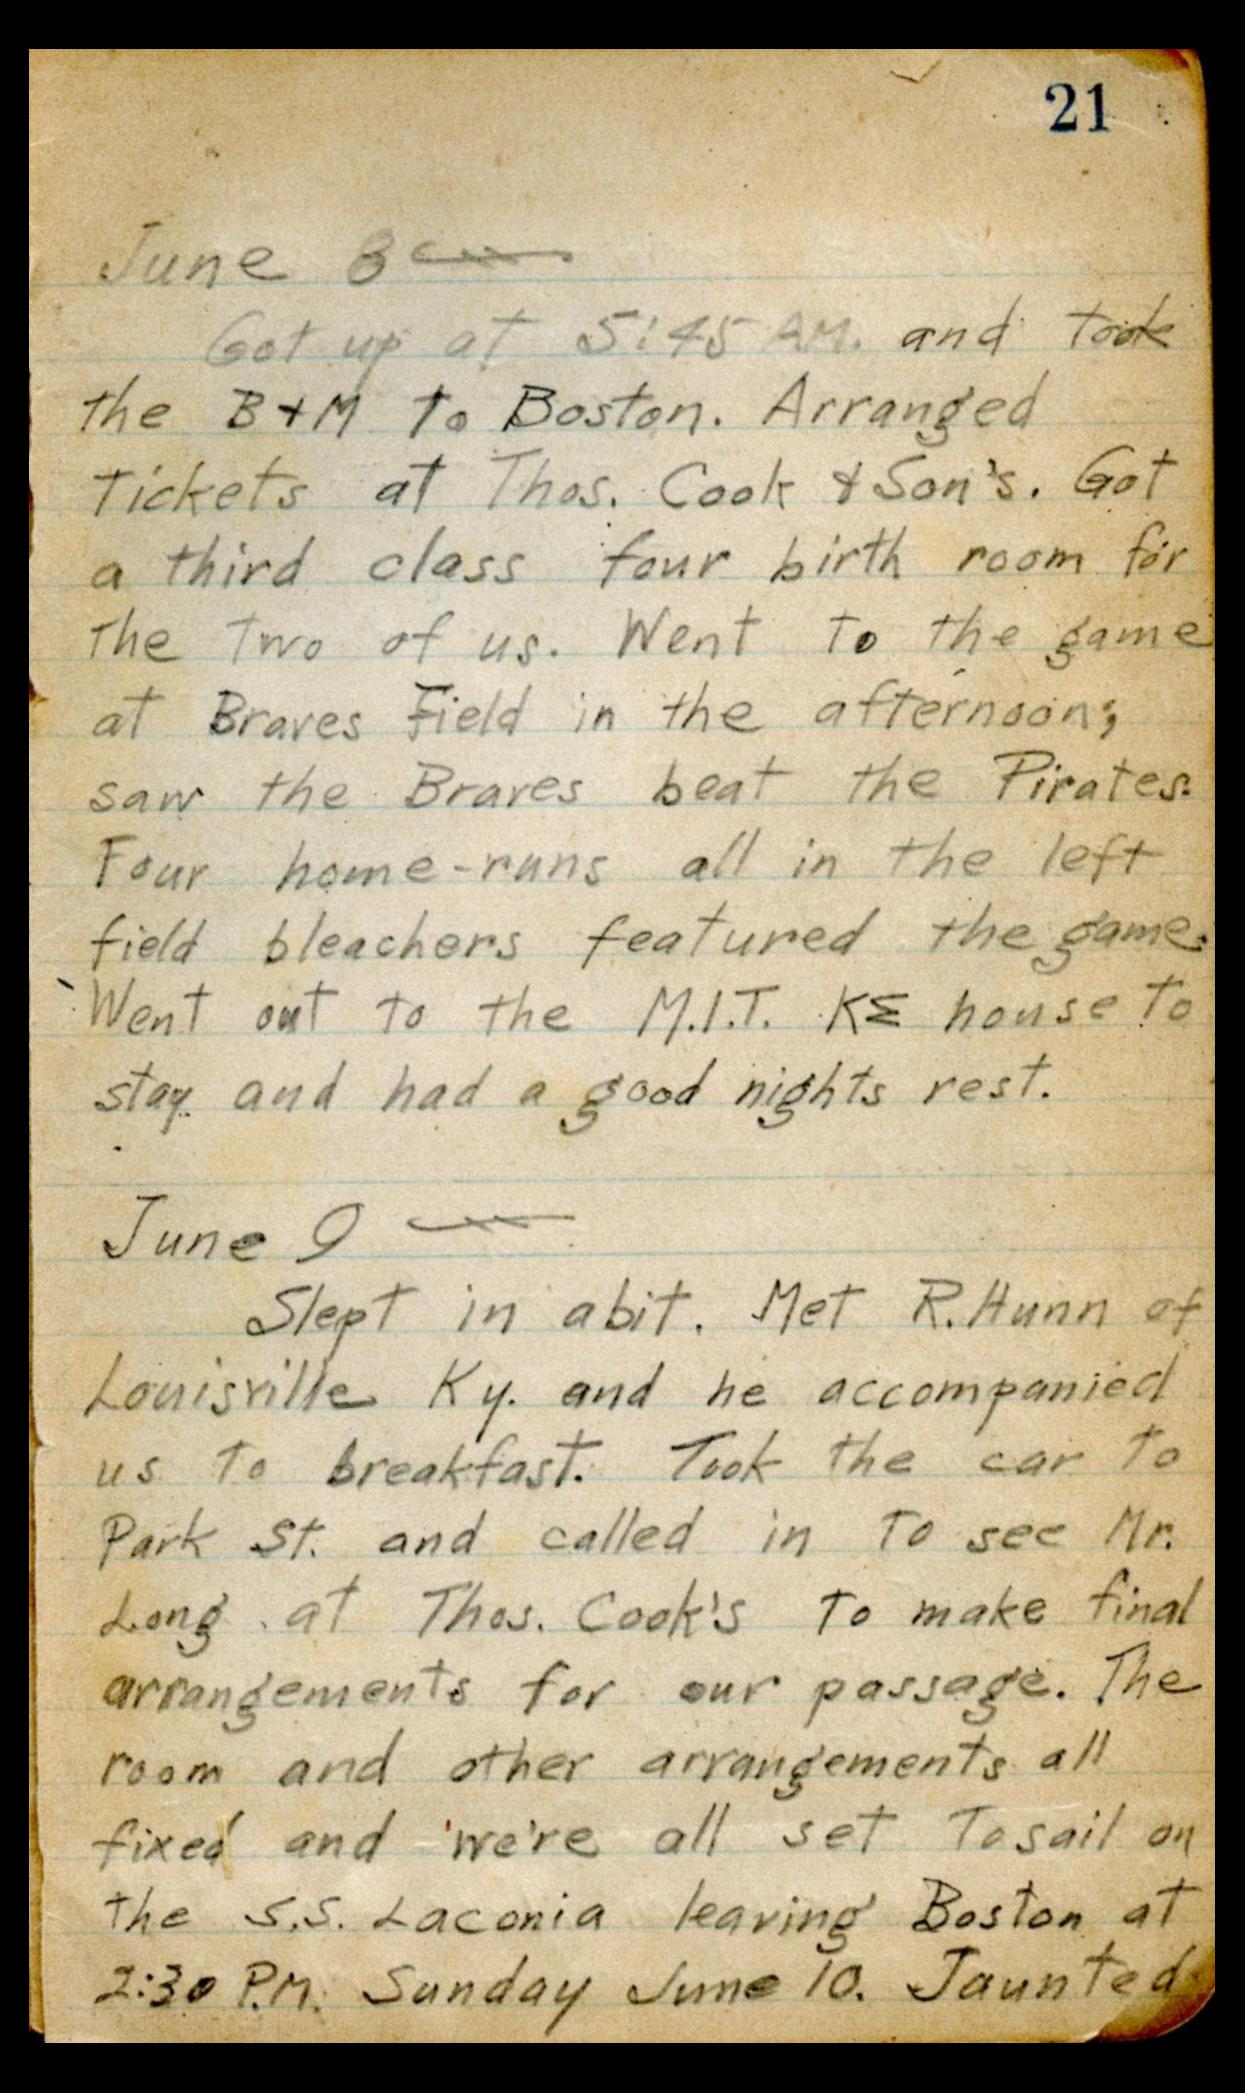 21
June 8
Got up at 5:45 AM. and took
the B+M to Boston. Arranged
tickets at Thos. Cook & Son's. Got
a third class four birth room for
the two of us. Went to the game
at Braves Field in the afternoon;
saw the Braves beat the Pirates.
Four home-runs all in the left
field bleachers featured the game.
Went out to the M.I.T. KΣ house to
stay and had a good nights rest.
June 9
Slept in abit. Met R. Hunn of
Louisville Ky. and he accompanied
us to breakfast. Took the car to
Park St. and called in to see Mr.
Long at Thos. Cook's to make final
arrangements for our passage. The
room and other arrangements all
fixed and we're all set to sail on
the S.S. Laconia leaving Boston at
2:30 P.M. Sunday June 10. Jaunted